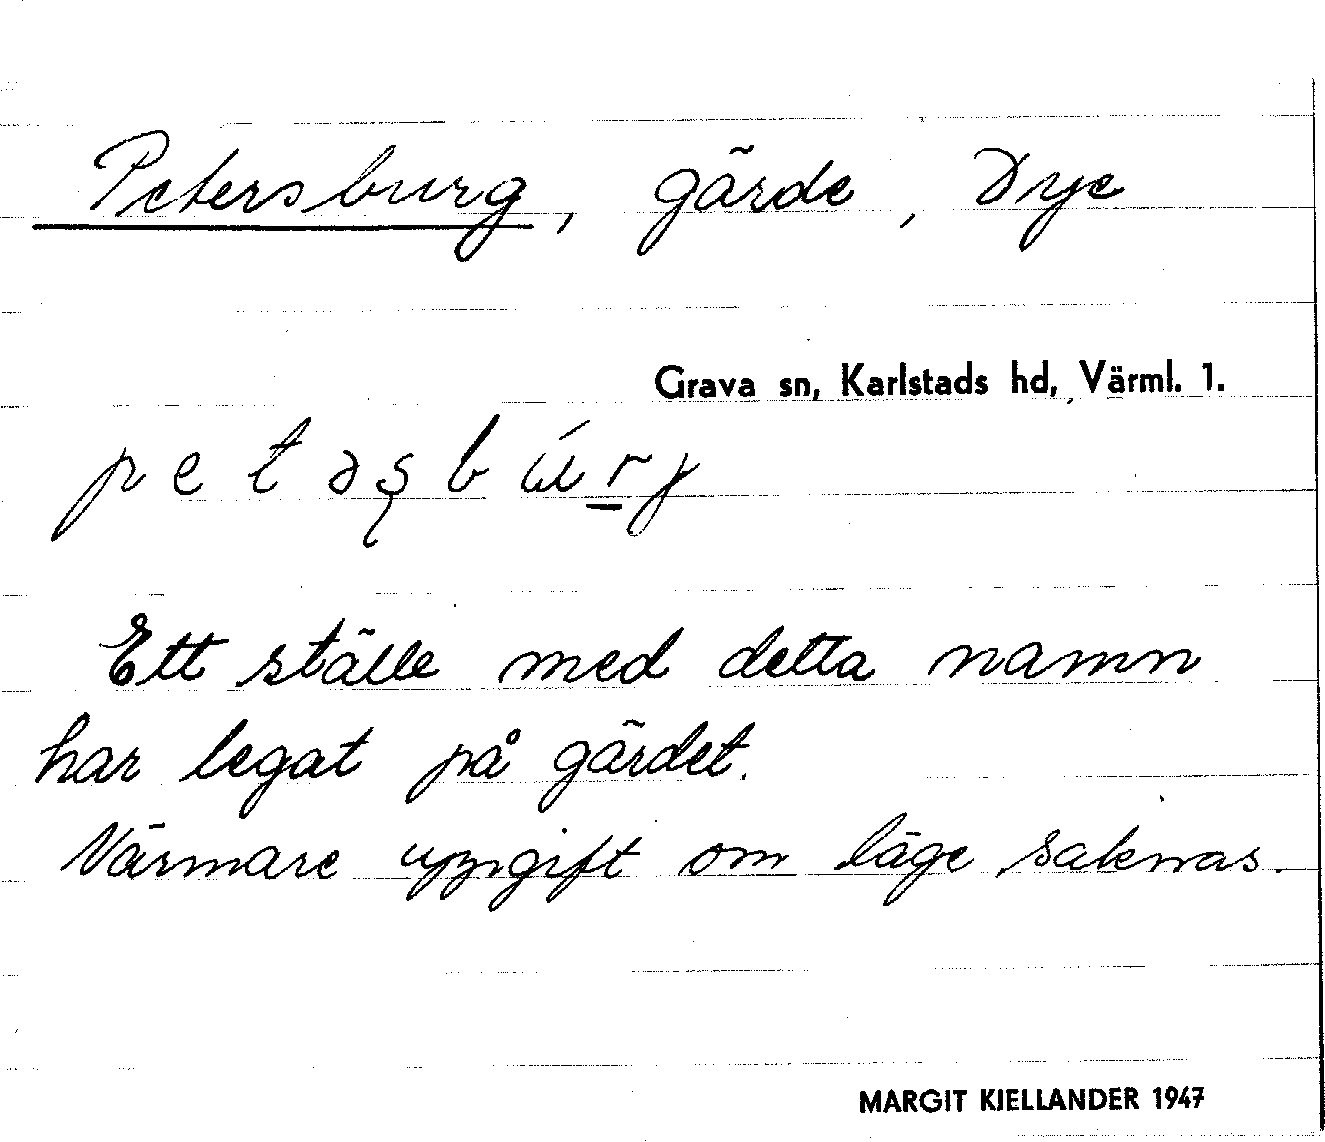 Petersburg, gärde, Dye
Grava sn, Karlstads hd, Värml. 1.
petəʂbúrj
Ett ställe med detta namn
har legat på gärdet.
Närmare uppgift om läge saknas.
MARGIT KJELLANDER 1947